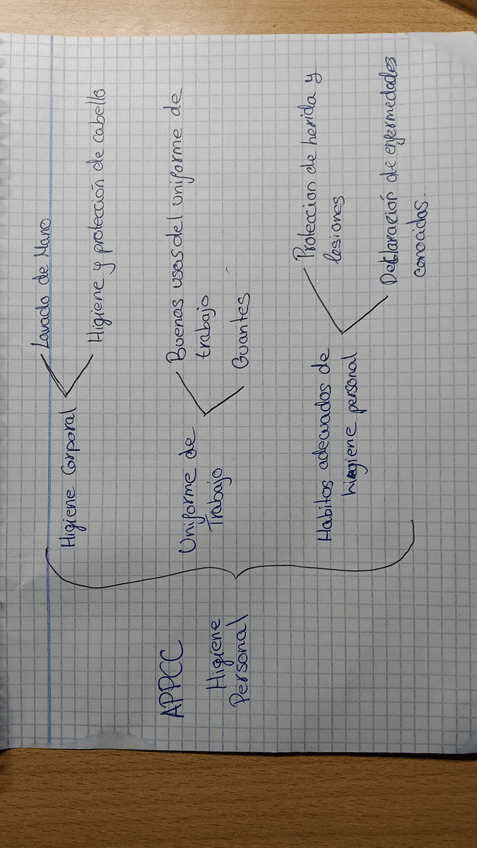 APPCC
Higiene
Personal
Higiene Corporal
Lavado de Mano
Higiene y protección de cabello
Uniforme de
Trabajo
Buenas usos del uniforme de
trabajo
Guantes
Habitos adecuados de
higiene personal
Proteccion de herida y
lesiones
Declaración de enfermedades
conocidas.